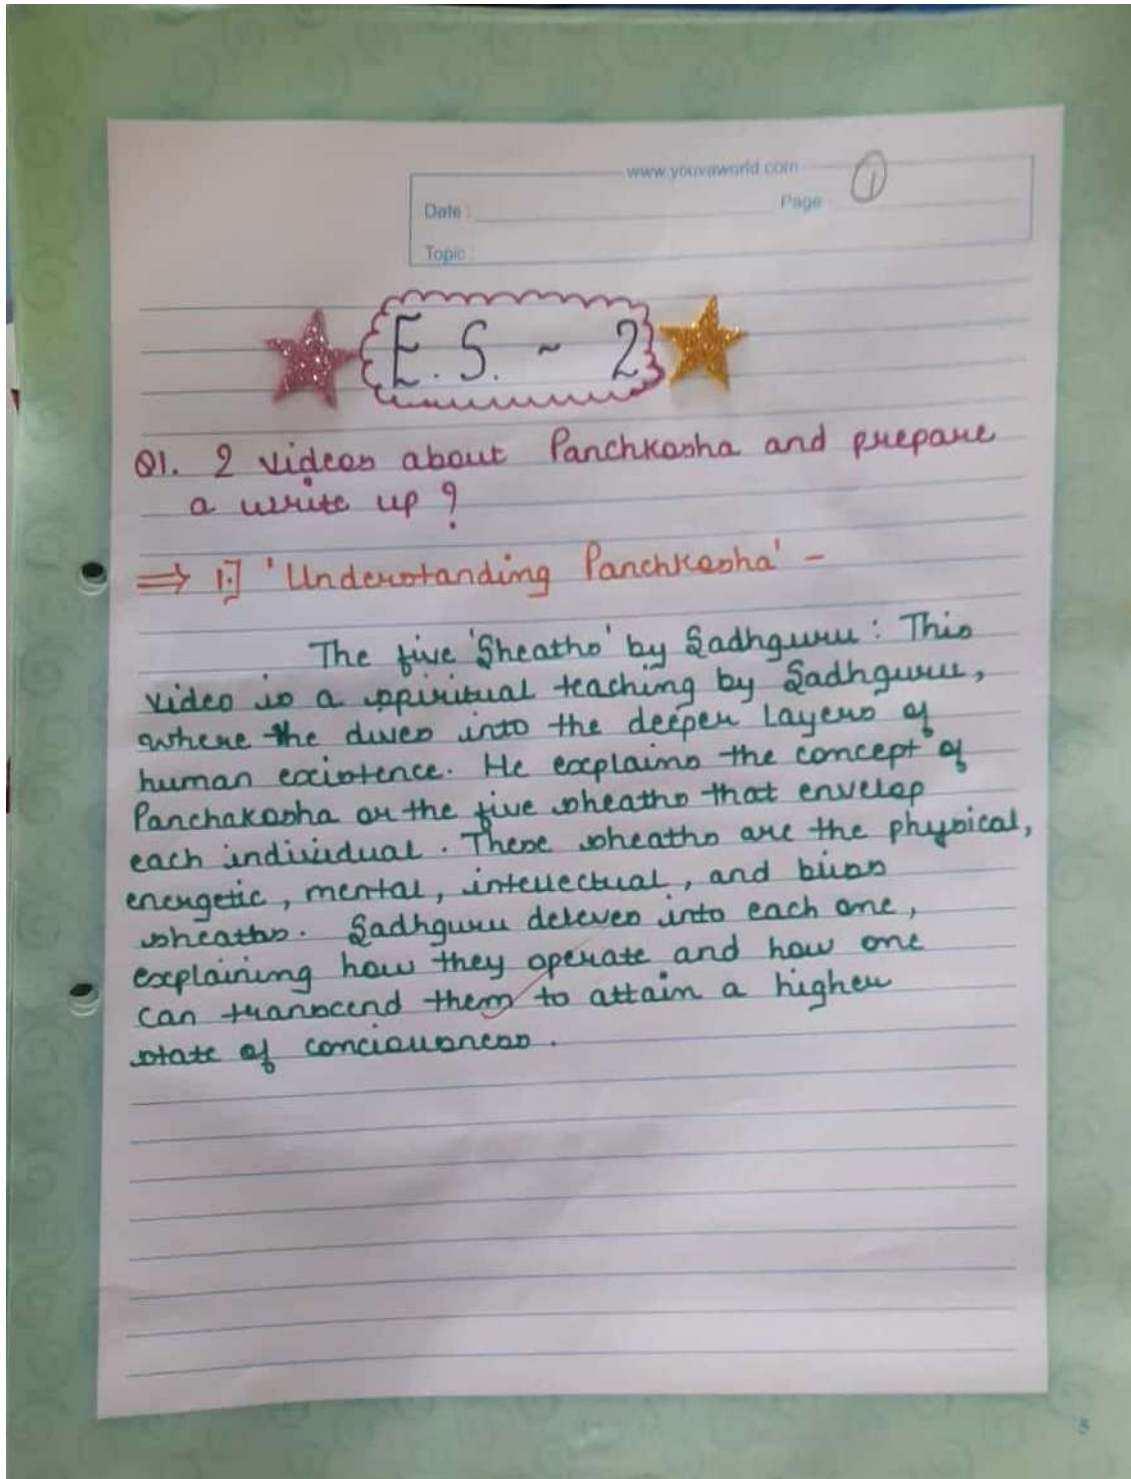 www.youvaworld.com
Date : Page 1
Topic :
E.S. - 2
Q1. 2 videos about Panchkosha and prepare
a write up ?
⇒ 1.] 'Understanding Panchkosha' -
The five 'Sheaths' by Sadhguru : This
video is a spiritual teaching by Sadhguru,
where the dives into the deeper layers of
human existence. He explains the concept of
Panchakosha or the five sheaths that envelop
each individual. These sheaths are the physical,
energetic, mental, intellectual, and bliss
sheaths. Sadhguru deleves into each one,
explaining how they operate and how one
can transcend them to attain a higher
state of conciousness.
5